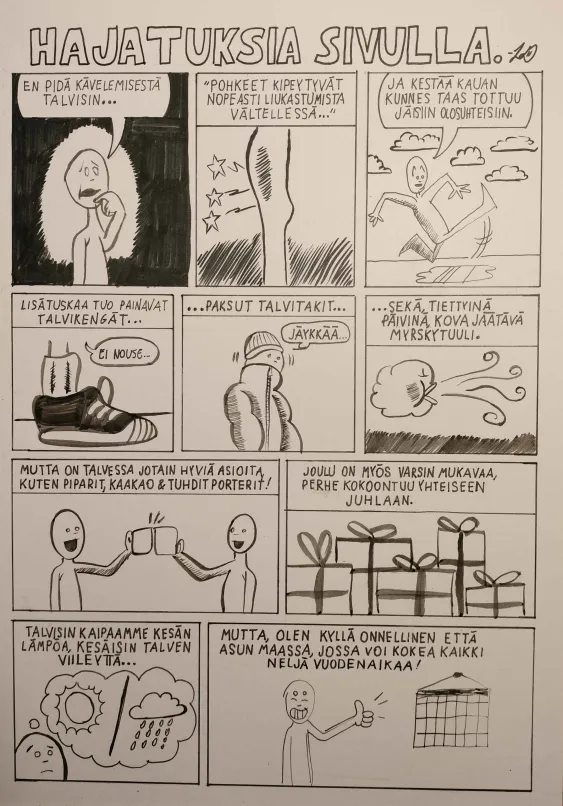 HAJATUKSIA SIVULLA.
EN PIDÄ KÄVELEMISESTÄ
TALVISIN...
"POHKEET KIPEYTYVÄT
NOPEASTI LIUKASTUMISTA
VÄLTELLESSÄ..."
JA KESTÄÄ KAUAN
KUNNES TAAS TOTTUU
JÄISIIN OLOSUHTEISIIN.
LISÄTUSKAA TUO PAINAVAT
TALVIKENGÄT...
EI NOUSE...
...PAKSUT TALVITAKIT...
JÄYKKÄÄ...
...SEKÄ, TIETTYINÄ
PÄIVINÄ, KOVA JÄÄTÄVÄ
MYRSKYTUULI.
MUTTA ON TALVESSA JOTAIN HYVIÄ ASIOITA,
KUTEN PIPARIT, KAAKAO & TUHDIT PORTERIT!
JOULU ON MYÖS VARSIN MUKAVAA,
PERHE KOKOONTUU YHTEISEEN
JUHLAAN.
TALVISIN KAIPAAMME KESÄN
LÄMPÖÄ, KESÄISIN TALVEN
VIILEYTTÄ...
MUTTA, OLEN KYLLÄ ONNELLINEN ETTÄ
ASUN MAASSA, JOSSA VOI KOKEA KAIKKI
NELJÄ VUODENAIKAA!